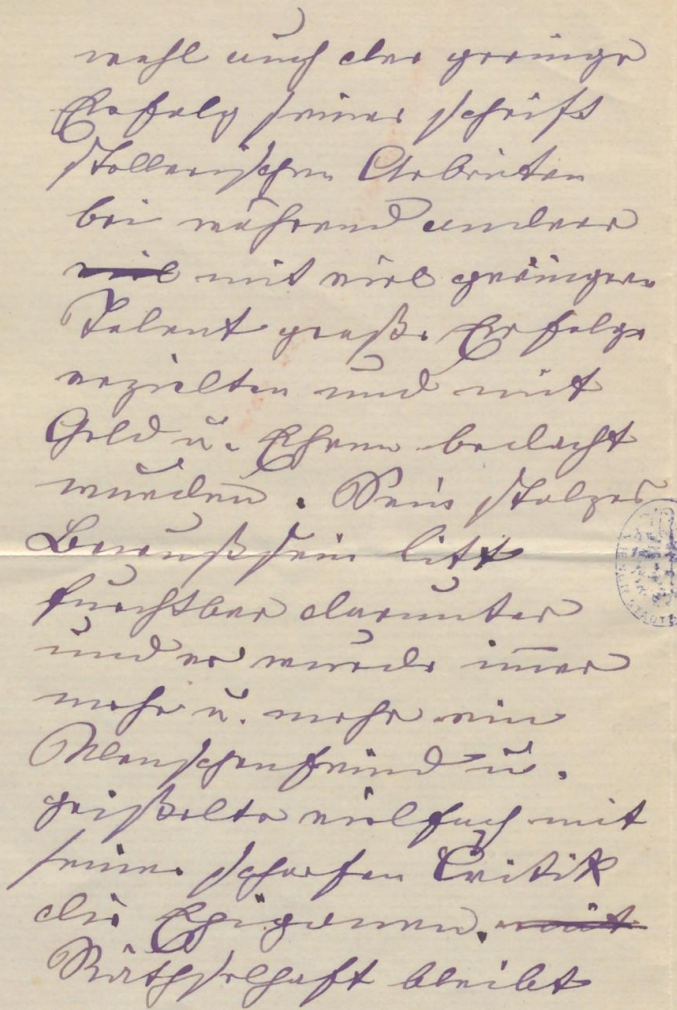 wohl auch der geringe
Erfolg seiner schrift
stellerischen Arbeiten
bei während andere
viel mit viel geringeren
Talent große Erfolge
erzielten und mit
Geld u. Ehren bedacht
wurden. Sein stolzes
Bewußtsein litt
furchtbar darunter
und er wurde im̅er
mehr u. mehr ein
Menschenfeind u.
geißelte vielfach mit
seiner scharfen Critik
die Epigonen. mit
Räthselhaft bleibt